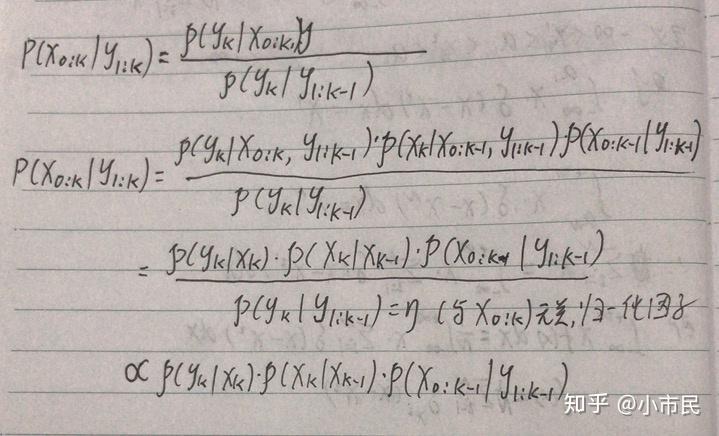 P(x₀:ₖ|y₁:ₖ) = p(yₖ|x₀:ₖ,)y / p(yₖ|y₁:ₖ₋₁)
P(x₀:ₖ|y₁:ₖ) = p(yₖ|x₀:ₖ, y₁:ₖ₋₁)·p(xₖ|x₀:ₖ₋₁, y₁:ₖ₋₁) p(x₀:ₖ₋₁|y₁:ₖ₋₁) / p(yₖ|y₁:ₖ₋₁)
= p(yₖ|xₖ)·p(xₖ|xₖ₋₁)·p(x₀:ₖ₋₁|y₁:ₖ₋₁) / p(yₖ|y₁:ₖ₋₁) = η (与x₀:ₖ)无关,归一化因子
∝ p(yₖ|xₖ)·p(xₖ|xₖ₋₁)·p(x₀:ₖ₋₁|y₁:ₖ₋₁)
知乎 @小市民